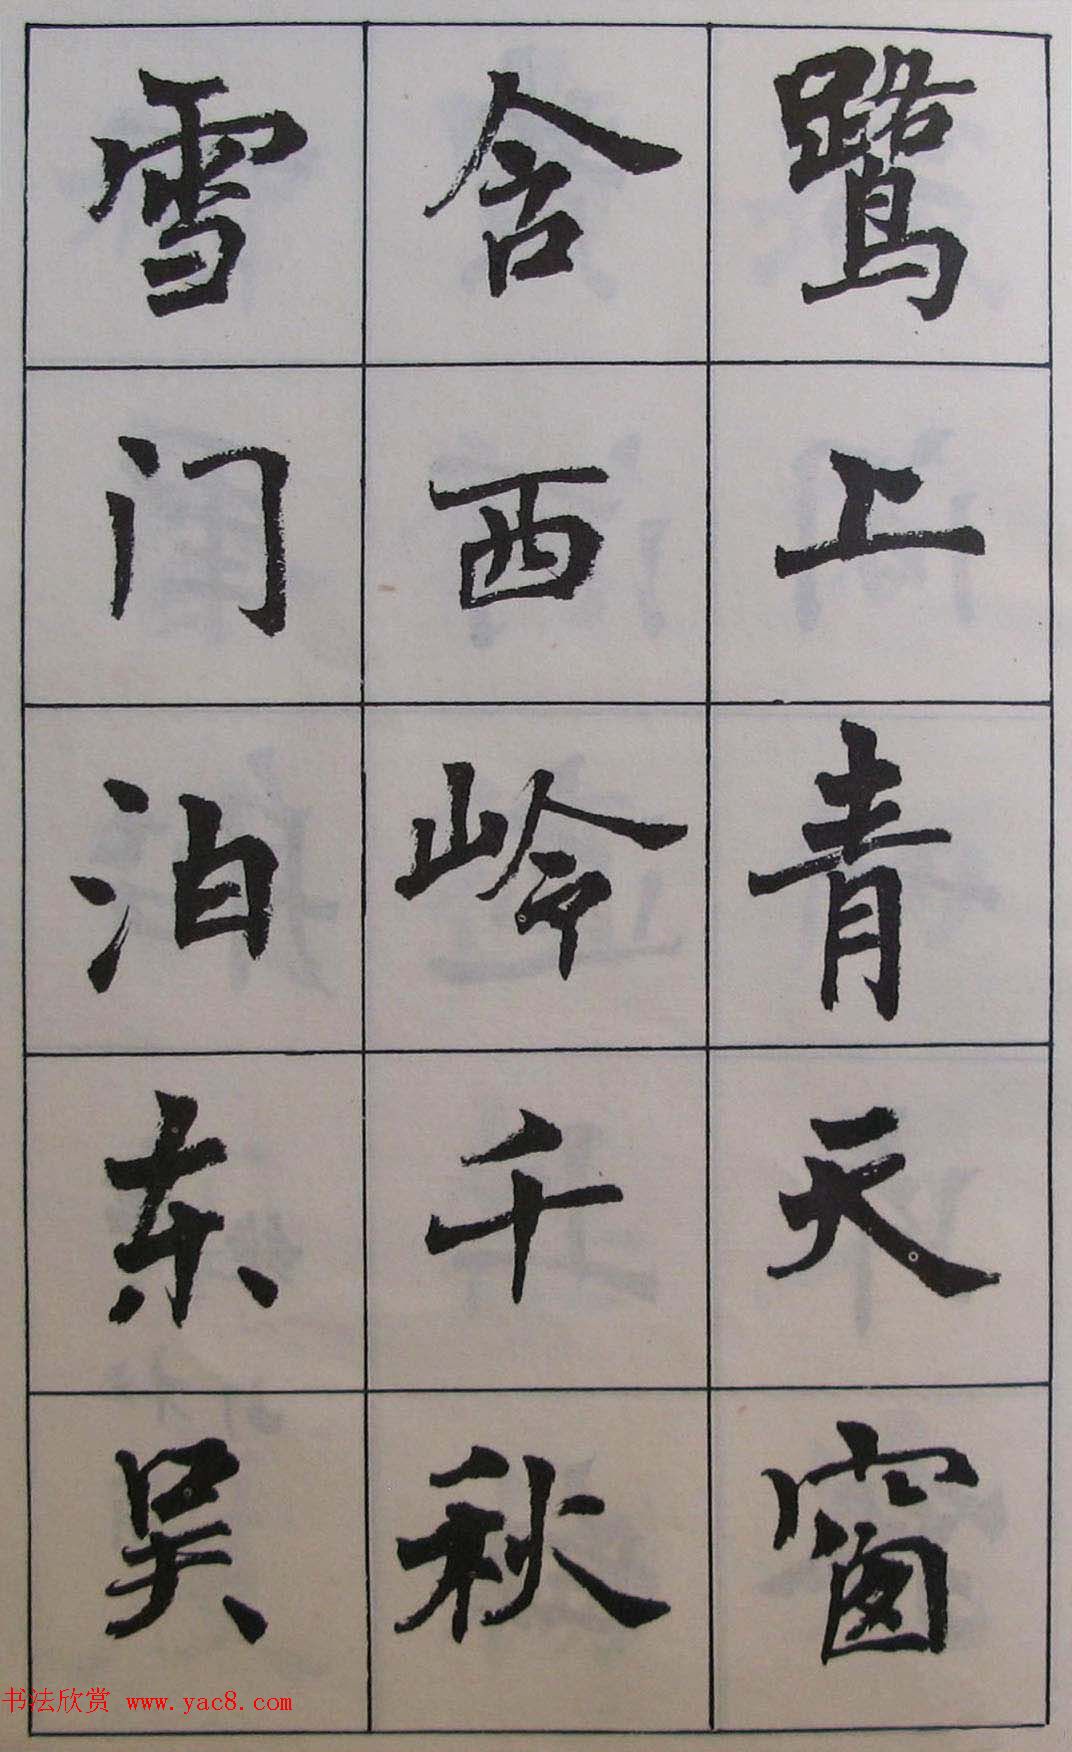 鹭上青天窗
含西岭千秋
雪门泊东吴
书法欣赏 www.yac8.com